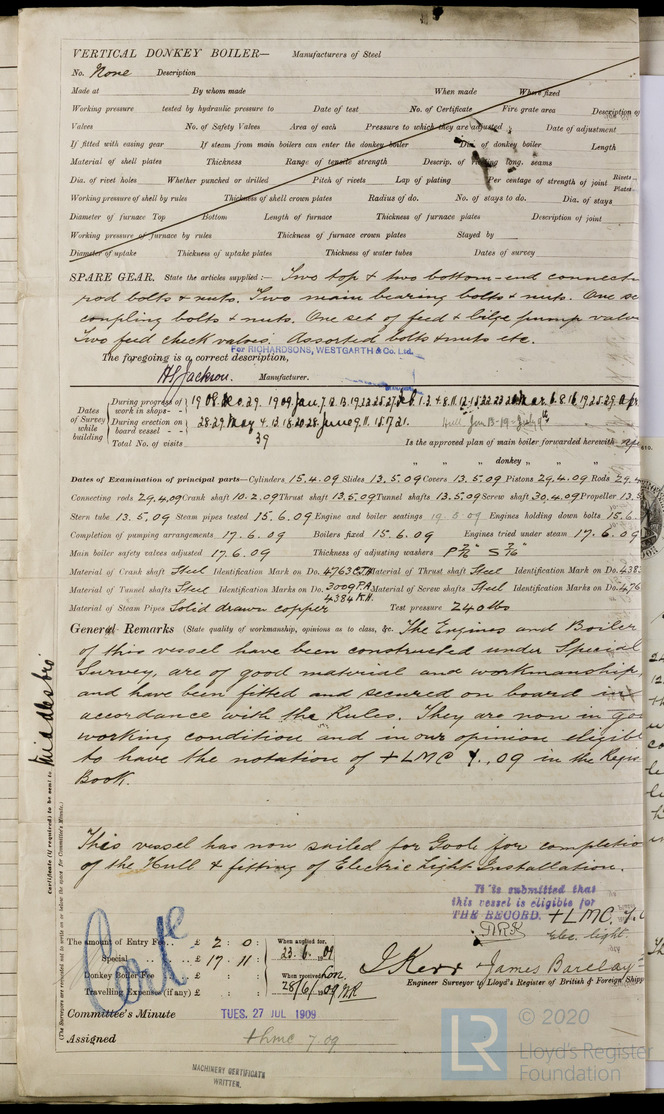 VERTICAL DONKEY BOILER— Manufacturers of Steel
No. None Description
Made at By whom made When made Where fixed
Working pressure tested by hydraulic pressure to Date of test No. of Certificate Fire grate area Description of
Valves No. of Safety Valves Area of each Pressure to which they are adjusted Date of adjustment
If fitted with easing gear If steam from main boilers can enter the donkey boiler Dia. of donkey boiler Length
Material of shell plates Thickness Range of tensile strength Descrip. of riveting long. seams
Dia. of rivet holes Whether punched or drilled Pitch of rivets Lap of plating Per centage of strength of joint Rivets
Plates
Working pressure of shell by rules Thickness of shell crown plates Radius of do. No. of stays to do. Dia. of stays
Diameter of furnace Top Bottom Length of furnace Thickness of furnace plates Description of joint
Working pressure of furnace by rules Thickness of furnace crown plates Stayed by
Diameter of uptake Thickness of uptake plates Thickness of water tubes Dates of survey
SPARE GEAR. State the articles supplied:— Two top & two bottom-end connect
rod bolts & nuts. Two main bearing bolts & nuts. One se
coupling bolts & nuts. One set of feed & bilge pump valv
Two feed check valves. Assorted bolts & nuts etc.
For RICHARDSONS, WESTGARTH & Co. Ltd.
The foregoing is a correct description,
Jackson. Manufacturer.
Dates of Survey while building
During progress of work in shops - - 1908. Dec. 29. 1909 Jan. 7.
During erection on board vessel - - 28.29. May 4. 13. 18. 20. 28. June 9. 11. 15. 17. 21.
Total No. of visits 39 Is the approved plan of main boiler forwarded herewith
" " " donkey " "
Dates of Examination of principal parts—Cylinders 15.4.09 Slides 13.5.09 Covers 13.5.09 Pistons 29.4.09 Rods 29.4
Connecting rods 29.4.09 Crank shaft 10.2.09 Thrust shaft 13.5.09 Tunnel shafts 13.5.09 Screw shaft 30.4.09 Propeller 13.5
Stern tube 13.5.09 Steam pipes tested 15.6.09 Engine and boiler seatings 19.5.09 Engines holding down bolts 15.6.
Completion of pumping arrangements 17.6.09 Boilers fixed 15.6.09 Engines tried under steam 17.6.09
Main boiler safety valves adjusted 17.6.09 Thickness of adjusting washers
Material of Crank shaft Steel Identification Mark on Do. 4763 Material of Thrust shaft Steel Identification Mark on Do. 438
Material of Tunnel shafts Steel Identification Marks on Do. 3009 P.A. 4384 K.H. Material of Screw shafts Steel Identification Marks on Do. 476
Material of Steam Pipes Solid drawn copper Test pressure 240 lbs
General Remarks (State quality of workmanship, opinions as to class, &c. The Engines and Boiler
of this vessel have been constructed under Special
Survey, are of good material and workmanship,
and have been fitted and secured on board in
accordance with the Rules. They are now in goo
working condition and in our opinion eligibl
to have the notation of +LMC 7.09 in the Regis
Book.
This vessel has now sailed for Goole for completio
of the Hull & fitting of Electric Light Installation.
It is submitted that
this vessel is eligible for
THE RECORD. + LMC. 7.0
Elec. light.
Certificate (if required) to be sent to Middlesbro
(The Surveyors are requested not to write on or below the space for Committee's Minute.)
Cert
The amount of Entry Fee . . £ 2 : 0 : When applied for,
Special . . . . £ 17 : 11 : 23.6.09
Donkey Boiler Fee . . . £ : : When received,
Travelling Expenses (if any) £ : : 28/6/09
J Kerr James Barclay
Engineer Surveyor to Lloyd's Register of British & Foreign Shipp
Committee's Minute TUES. 27 JUL 1909
Assigned + lmc 7.09
MACHINERY CERTIFICATE
WRITTEN.
LR © 2020
Lloyd's Register
Foundation